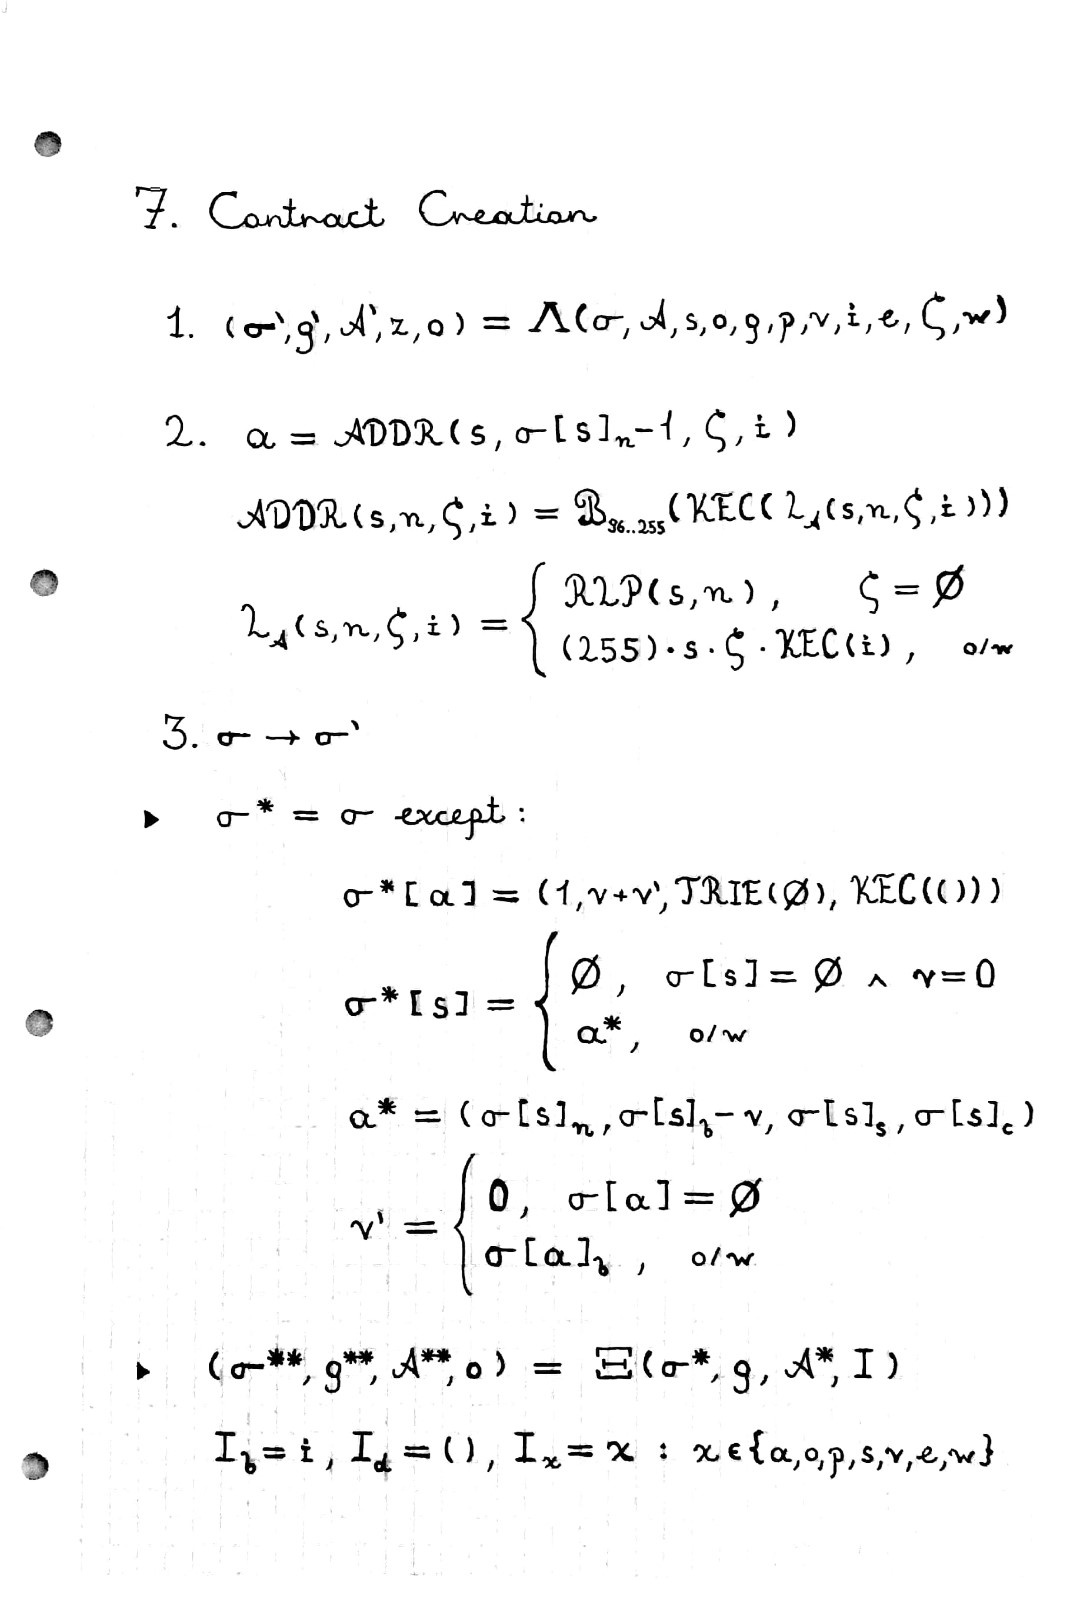 7. Contract Creation
1. (σ‵, g‵, A‵, z, o) = Λ(σ, A, s, o, g, p, v, i, e, ζ, w)
2. α = ADDR(s, σ[s]ₙ-1, ζ, i)
ADDR(s, n, ζ, i) = B_96..255(KEC(L_A(s, n, ζ, i)))
L_A(s, n, ζ, i) = { RLP(s, n), ζ = Ø
(255)·s·ζ·KEC(i), o/w
3. σ → σ‵
▶ σ* = σ except:
σ*[α] = (1, v+v‵, TRIE(Ø), KEC(()))
σ*[s] = { Ø, σ[s] = Ø ∧ v=0
α*, o/w
α* = (σ[s]_n, σ[s]_b - v, σ[s]_s, σ[s]_c)
v' = { 0, σ[α] = Ø
σ[α]_b, o/w
▶ (σ**, g**, A**, o) = Ξ(σ*, g, A*, I)
I_b = i, I_d = (), I_x = x : x ∈ {α, o, p, s, v, e, w}